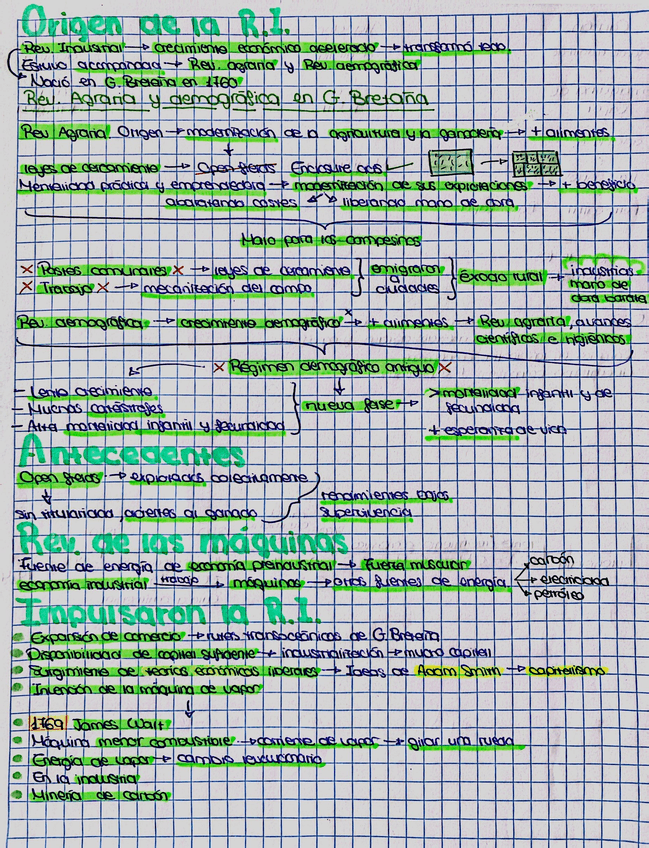 Origen de la R.I.
Rev. Industrial → crecimiento económico acelerado → transformó todo.
Estuvo acompañada → Rev. agraria y Rev. demográfica
→ Nació en G. Bretaña en 1760
Rev. Agraria y demográfica en G. Bretaña
Rev Agraria: Origen → modernización de la agricultura y la ganadería → + alimentos
↓
leyes de cercamiento → Open fields Enclosure acts
Mentalidad práctica y emprendedora → modernización de sus explotaciones → + beneficio
abaratando costes liberando mano de obra
Malo para los campesinos
X Pastos comunales X → leyes de cercamiento } emigraron a ciudades } éxodo rural → industrias mano de obra barata
X Trabajo X → mecanización del campo
Rev. demográfica → crecimiento demográfico → + alimentos → Rev agraria, avances
científicos e higiénicos
X Régimen demográfico antiguo X
- Lento crecimiento
- Muchas catástrofes
- Alta mortalidad infantil y fecundidad
} nueva fase → > mortalidad infantil y de
fecundidad
+ esperanza de vida
Antecedentes
Open fields → explotados colectivamente
↓
sin titularidad, abiertos al ganado
rendimientos bajos,
supervivencia
Rev. de las máquinas
Fuente de energía de economía preindustrial → fuerza muscular
economía industrial trabajo → máquinas → otras fuentes de energía
carbón
→ electricidad
petróleo
Impulsaron la R.I.
Expansión de comercio → rutas transoceánicas de G.Bretaña
Disponibilidad de capital suficiente → industrialización → mucho capital
Surgimiento de teorías económicas liberales → Ideas de Adam Smith → capitalismo
Invención de la máquina de vapor
↓
1769 James Watt
Máquina menor combustible → corriente de vapor → girar una rueda
Energía de vapor → cambio revolucionario
En la industria
Minería de carbón